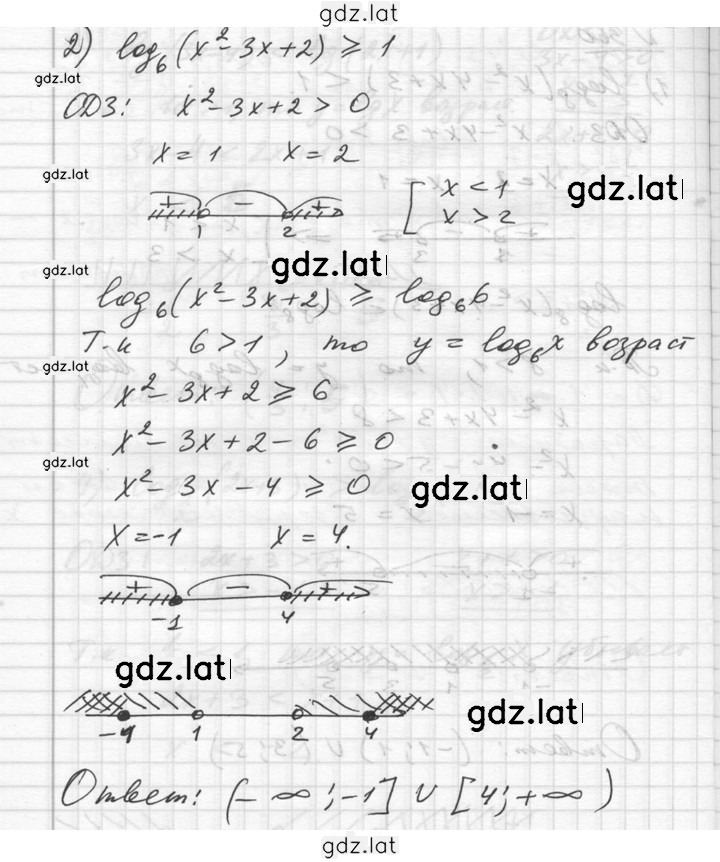 gdz.lat
2) log₆(x² - 3x + 2) ≥ 1
gdz.lat
ОДЗ: x² - 3x + 2 > 0
x = 1 x = 2
gdz.lat
+ - +
1 2
[ x < 1
x > 2
gdz.lat
gdz.lat
gdz.lat
log₆(x² - 3x + 2) ≥ log₆6
Т.к 6 > 1, то y = log₆x возраст
gdz.lat
x² - 3x + 2 ≥ 6
x² - 3x + 2 - 6 ≥ 0
gdz.lat
x² - 3x - 4 ≥ 0
gdz.lat
x = -1 x = 4.
+ - +
-1 4
gdz.lat
gdz.lat
-1 1 2 4
Ответ: (-∞; -1] ∪ [4; +∞)
gdz.lat